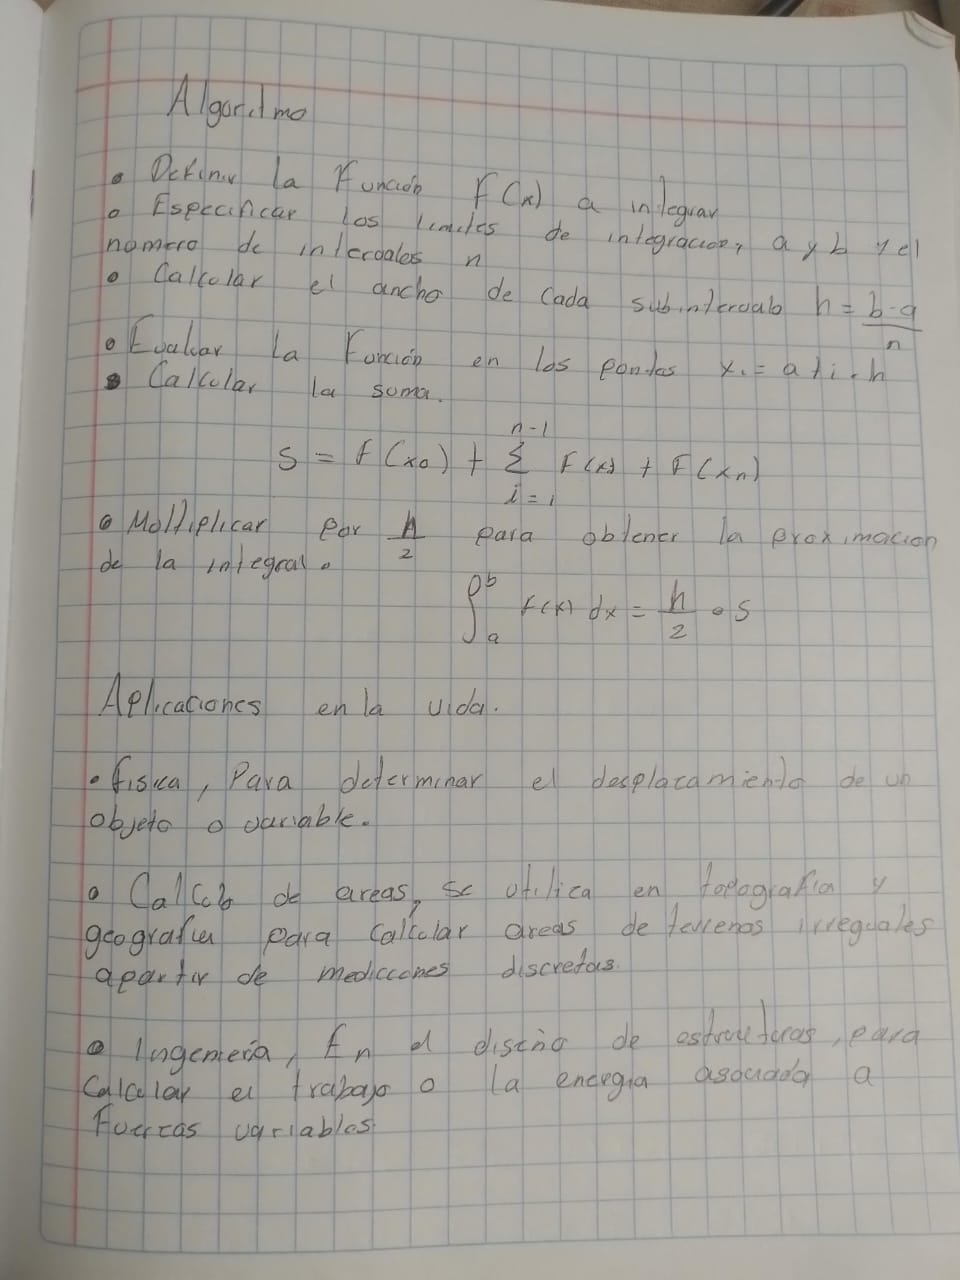 Algoritmo
• Definir la Función F(x) a integrar
• Especificar los limites de integracion, a y b y el
numero de intervalos n
• Calcular el ancho de cada subintervalo h = b-a
n
• Evaluar la Función en los puntos xi = a + i · h
• Calcular la soma.
n-1
S = F(x0) + Σ F(x) + F(xn)
i=1
• Moltiplicar por h/2 para obtener la proximacion
de la integral.
∫ab F(x) dx = h/2 • S
Aplicaciones en la vida.
• fisica, Para determinar el desplacamiento de un
objeto o variable.
• Calculo de areas, se utilica en topografia y
geografia para Calcular areas de terrenos irreguales
apartir de medicciones discretas.
• Ingenieria, En el diseño de estructuras, para
Calcular el trabajo o la energia asociada a
Fuerzas variables